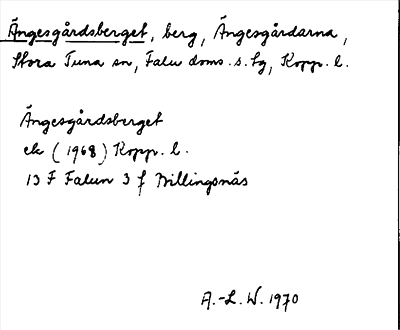 Ängesgårdsberget, berg, Ängesgårdarna,
Stora Tuna sn, Falu doms. s. lg, Kopp. l.
Ängesgårdsberget
ek (1968) Kopp. l.
13 F Falun 3 f Billingsnäs
A.-L. W. 1970